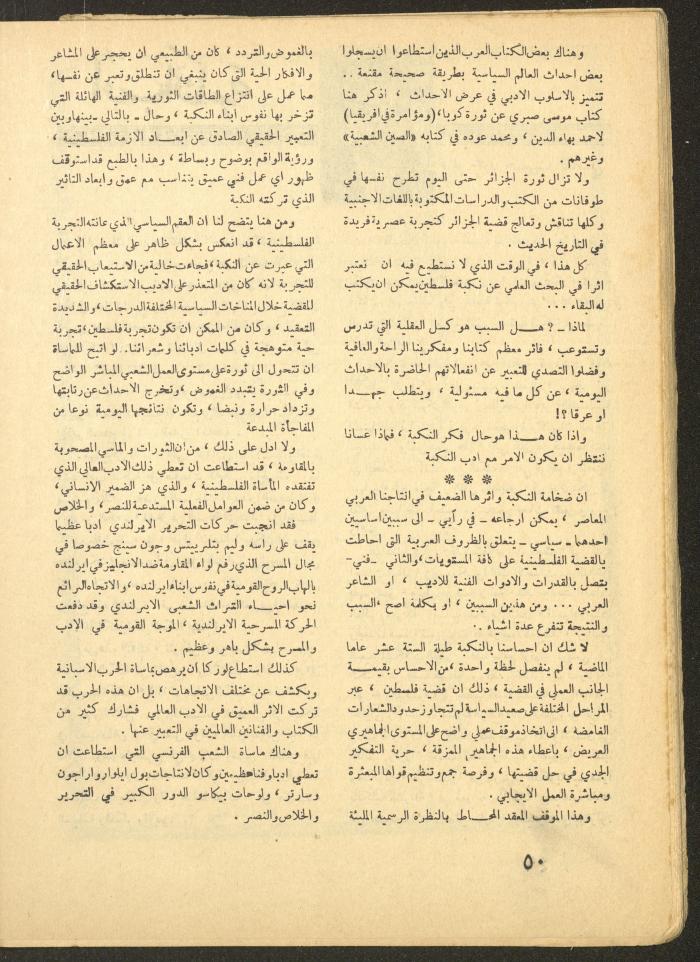 وهناك بعض الكتاب العرب الذين استطاعوا ان يسجلوا
بعض احداث العالم السياسية بطريقة صحيحة مقنعة ..
تتميز بالاسلوب الادبي في عرض الاحداث ، اذكر هنا
كتاب موسى صبري عن ثورة كوبا ، (ومؤامرة في افريقيا)
لاحمد بهاء الدين ، ومحمد عوده في كتابه «الصين الشعبية»
وغيرهم .
ولا تزال ثورة الجزائر حتى اليوم تطرح نفسها في
طوفانات من الكتب والدراسات المكتوبة باللغات الاجنبية
وكلها تناقش وتعالج قضية الجزائر كتجربة عصرية فريدة
في التاريخ الحديث .
كل هذا ، في الوقت الذي لا نستطيع فيه ان نعتبر
اثرا في البحث العلمي عن نكبة فلسطين يمكن ان يكتب
له البقاء ...
لماذا - ؟ هــل السبب هو كسل العقلية التي تدرس
وتستوعب ، فاثر معظم كتابنا ومفكرينا الراحة والعافية
وفضلوا التصدي للتعبير عن انفعالاتهم الحاضرة بالاحداث
اليومية ، عن كل ما فيه مسئولية ، ويتطلب جهــدا
او عرقا ؟!
واذا كان هــذا هو حال فكر النكبة ، فماذا عسانا
ننتظر ان يكون الامر مع ادب النكبة
* * *
ان ضخامة النكبة واثرها الضعيف في انتاجنا العربي
المعاصر ، يمكن ارجاعه - في رأيي - الى سببين اساسيين
احدهمــا - سياسي - يتعلق بالظروف العربية التي احاطت
بالقضية الفلسطينية على كافة المستويات ، والثاني - فني -
يتصل بالقدرات والادوات الفنية للاديب ، او الشاعر
العربي ... ومن هذين السببين ، او بكلمة اصح ، السبب
والنتيجة تتفرع عدة اشياء .
لا شك ان احساسنا بالنكبة طيلة الستة عشر عاما
الماضية ، لم ينفصل لحظة واحدة ، من الاحساس بقيمــة
الجانب العملي في القضية ، ذلك ان قضية فلسطين ، عبر
المراحل المختلفة على صعيد السياسة لم تتجاوز حدود الشعارات
الغامضه ، الى اتخاذ موقف عملي واضح على المستوى الجماهيري
العريض ، باعطاء هذه الجماهير الممزقة ، حرية التفكير
الجدي في حل قضيتها ، وفرصة جمع وتنظيم قواها المبعثرة
ومباشرة العمل الايجابي .
وهذا الموقف المعقد المحــاط بالنظرة الرسمية المليئة
بالغموض والتردد ، كان من الطبيعي ان يحجر على المشاعر
والافكار الحية التي كان ينبغي ان تنطلق وتعبر عن نفسها ،
مما عمل على انتزاع الطاقات الثورية والفنية الهائلة التي
تزخر بها نفوس ابناء النكبة ، وحال - بالتالي - بينها وبين
التعبير الحقيقي الصادق عن ابعــاد الازمة الفلسطينية ،
ورؤية الواقع بوضوح وبساطة ، وهذا بالطبع قد استوقف
ظهور اي عمل فني عميق يتناسب مع عمق وابعاد التاثير
الذي تركته النكبة
ومن هنا يتضح لنا ان العقم السياسي الذي عانته التجربة
الفلسطينية ، قد انعكس بشكل ظاهر على معظم الاعمال
التي عبرت عن النكبة ، فجاءت خالية من الاستيعاب الحقيقي
للتجربة لانه كان من المتعذر على الاديب الاستكشاف الحقيقي
للقضية خلال المناخات السياسية المختلفة الدرجات ، والشديدة
التعقيد ، وكان من الممكن ان تكون تجربة فلسطين ، تجربة
حية متوهجة في كلمات ادبائنا وشعرائنا .. لو اتيح للماساة
ان تتحول الى ثورة على مستوى العمل الشعبي المباشر الواضح
وفي الثورة يتبدد الغموض ، وتخرج الاحداث عن رتابتها
وتزداد حرارة ونبضا ، وتكون نتائجها اليومية نوعا من
المفاجأة المبدعة
ولا ادل على ذلك ، من ان الثورات والماسي المصحوبة
بالمقاومة ، قد استطاعت ان تعطي ذلك الادب العالي الذي
تفتقده المأساة الفلسطينية ، والذي هز الضمير الانساني ،
وكان من ضمن العوامل الفعلية المستدعية للنصر ، والخلاص
فقد انجبت حركات التحرير الايرلندي ادبا عظيما
يقف على راسه وليم بتلر ييتس وجون سينج خصوصا في
مجال المسرح الذي رفع لواء المقاومة ضد الانجليز في ايرلنده
بالهاب الروح القومية في نفوس ابناء ايرلنده ، والاتجاه الرائع
نحو احيــاء التراث الشعبى الايرلندي وقد دفعت
الحركة المسرحية الايرلندية ، الموجة القومية في الادب
والمسرح بشكل باهر وعظيم .
كذلك استطاع لوركا ان يرهص بماساة الحرب الاسبانية
ويكشف عن مختلف الاتجاهات ، بل ان هذه الحرب قد
تركت الاثر العميق في الادب العالمي فشارك كثير من
الكتاب والفنانين العالميين في التعبير عنها .
وهناك ماساة الشعب الفرنسي التي استطاعت ان
تعطي ادبا وفنا عظيمين وكان لانتاجات بول ايلوار واراجون
وسارتر ، ولوحات بيكاسو الدور الكبير في التحرير
والخلاص والنصر .
٥٠